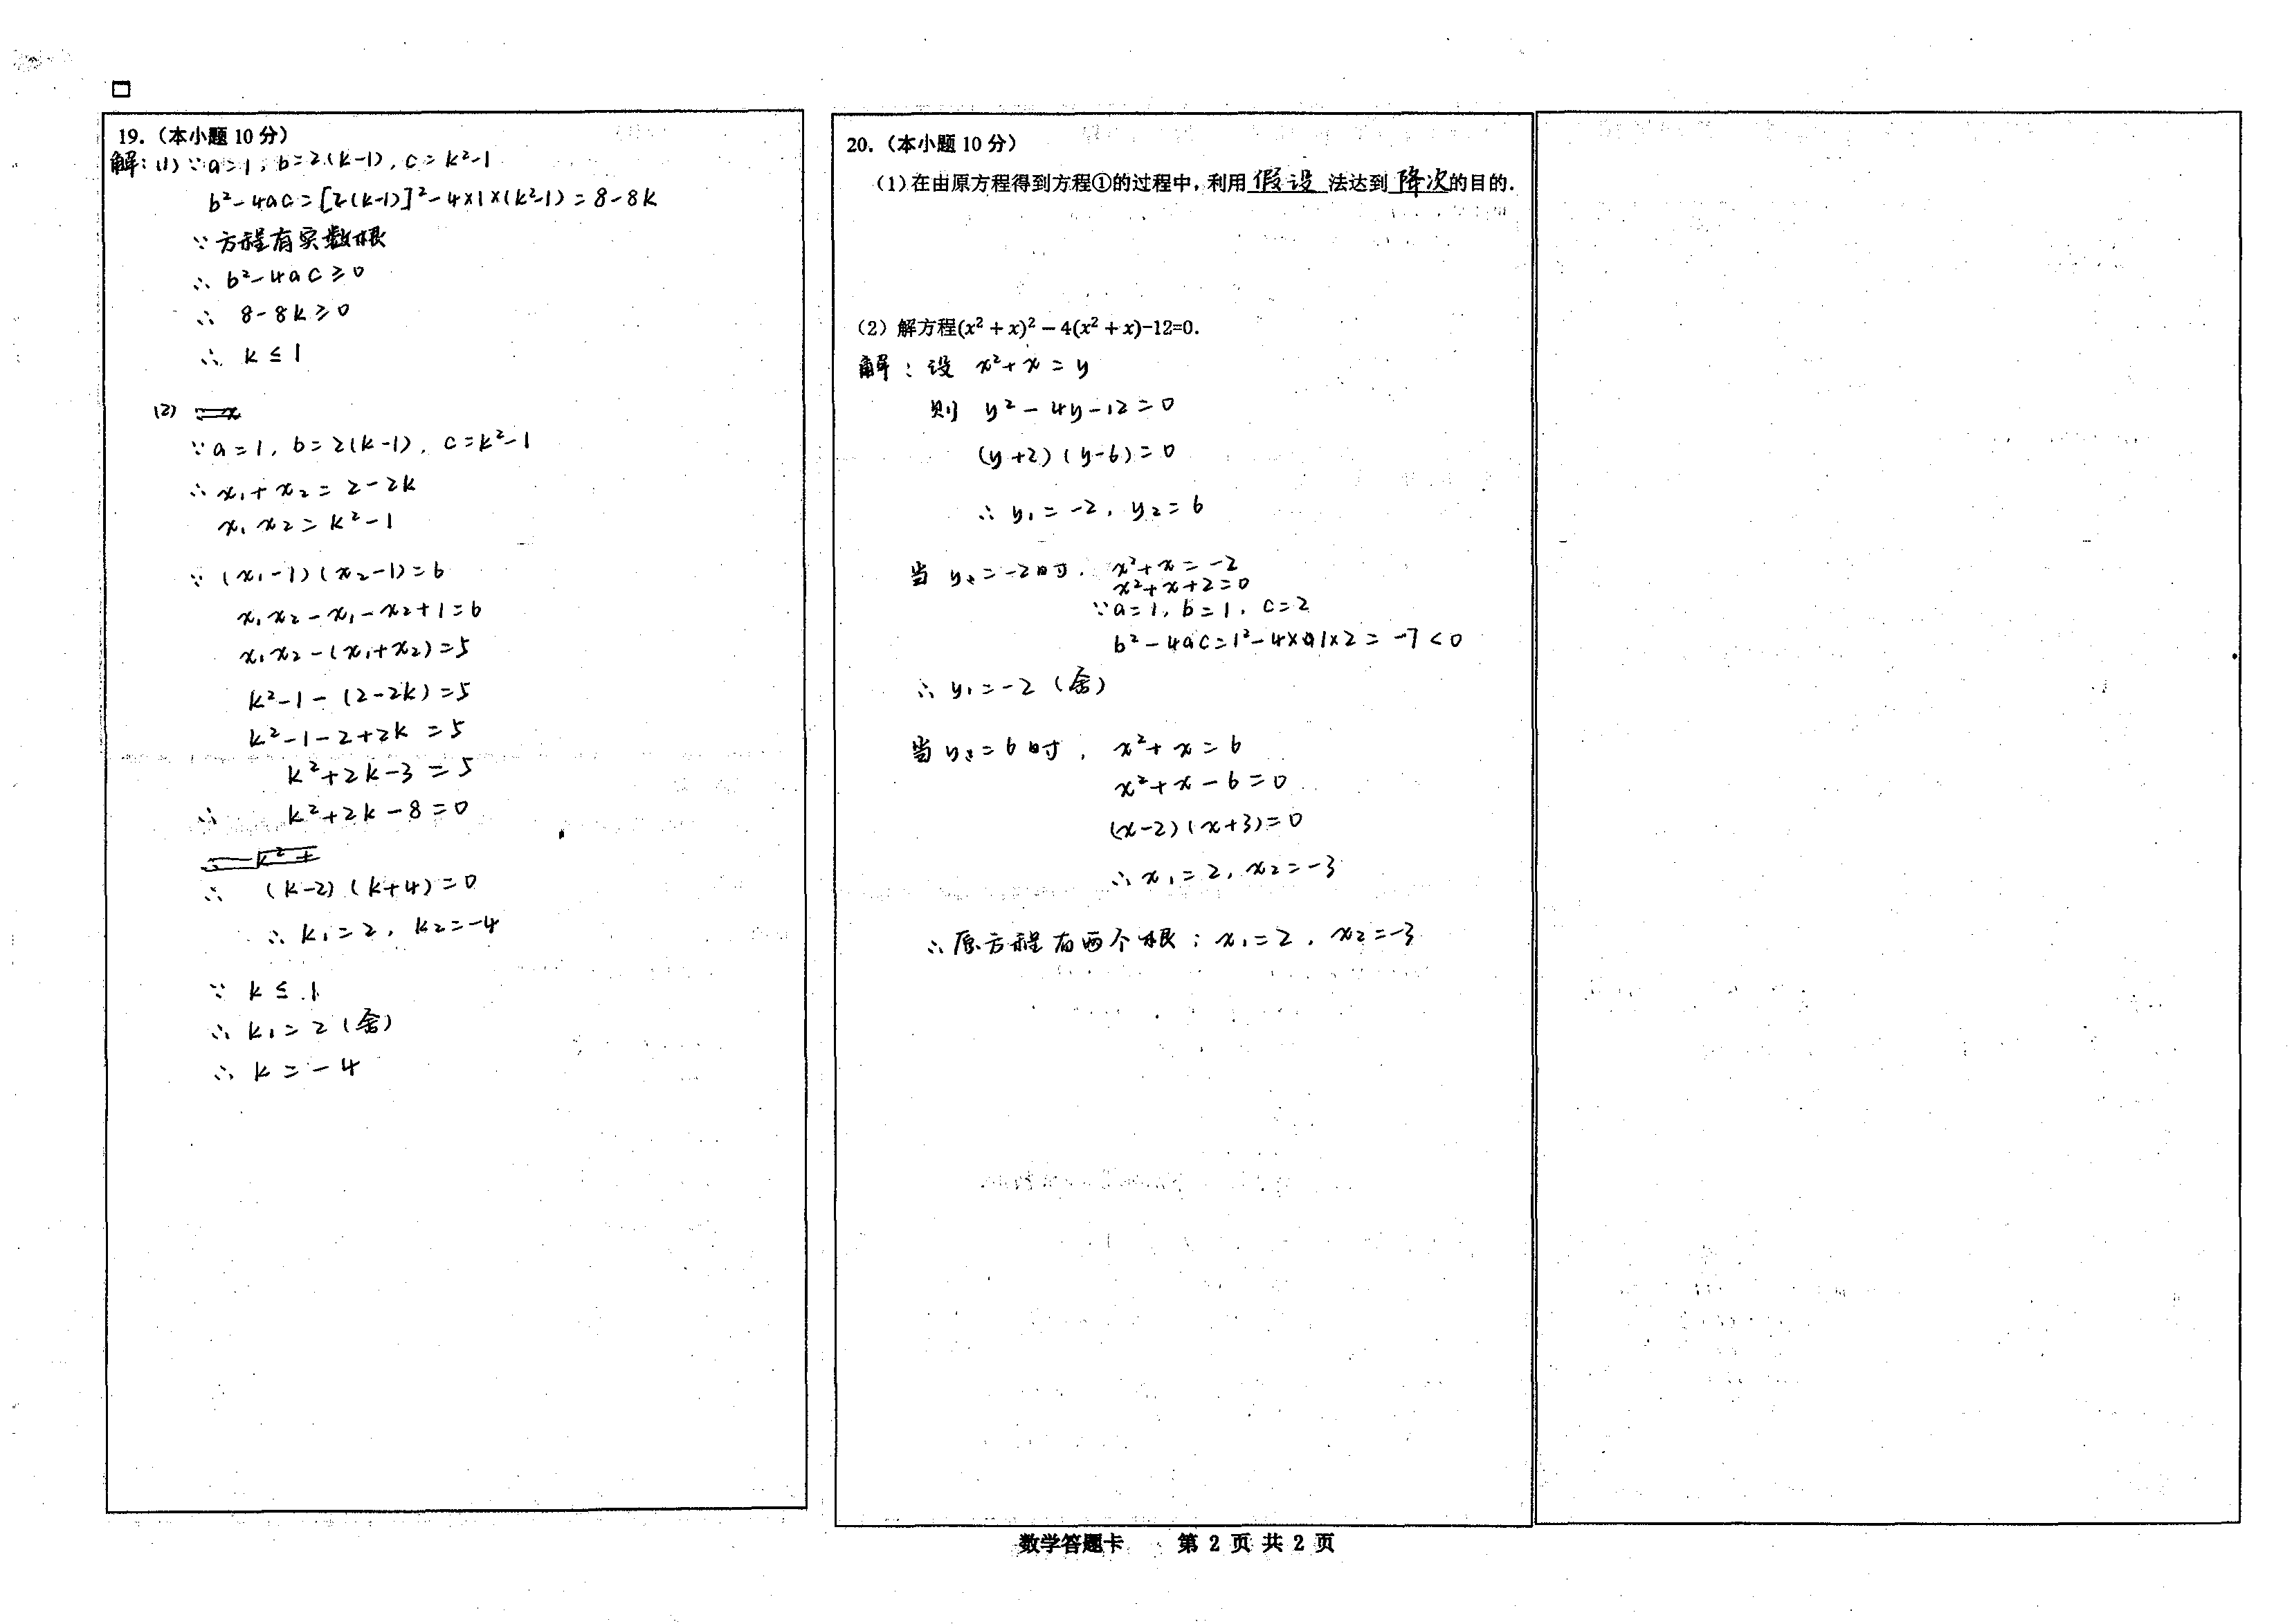 19.（本小题 10 分）
解:(1) ∵a=1, b=2(k-1), c=k²-1
b²-4ac=[2(k-1)]²-4×1×(k²-1)=8-8k
∵方程有实数根
∴ b²-4ac≥0
∴ 8-8k≥0
∴ k≤1
(2)
∵a=1, b=2(k-1), c=k²-1
∴x₁+x₂=2-2k
x₁x₂=k²-1
∵(x₁-1)(x₂-1)=6
x₁x₂-x₁-x₂+1=6
x₁x₂-(x₁+x₂)=5
k²-1-(2-2k)=5
k²-1-2+2k=5
k²+2k-3=5
∴ k²+2k-8=0
∴ (k-2)(k+4)=0
∴ k₁=2, k₂=-4
∵ k≤1
∴ k₁=2(舍)
∴ k=-4
20.（本小题 10 分）
（1）在由原方程得到方程①的过程中，利用 假设 法达到 降次 的目的.
（2）解方程(x² + x)² − 4(x² + x)-12=0.
解：设 x²+x=y
则 y²-4y-12=0
(y+2)(y-6)=0
∴ y₁=-2, y₂=6
当 y₁=-2时, x²+x=-2
x²+x+2=0
∵a=1, b=1, c=2
b²-4ac=1²-4×1×2=-7<0
∴ y₁=-2(舍)
当 y₂=6时, x²+x=6
x²+x-6=0
(x-2)(x+3)=0
∴ x₁=2, x₂=-3
∴原方程有两个根：x₁=2, x₂=-3
数学答题卡 第 2 页 共 2 页